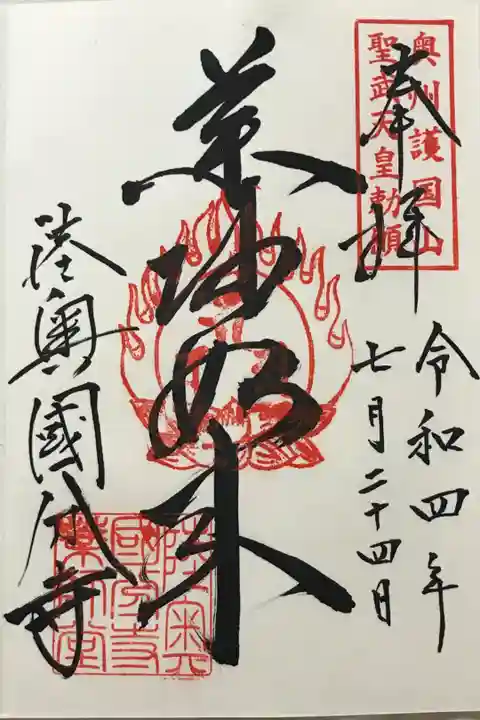 奥州護国山
聖武天皇勅願
奉拝
令和四年
七月二十四日
薬師如来
陸奥國分寺
陸奥
國分寺
薬師堂